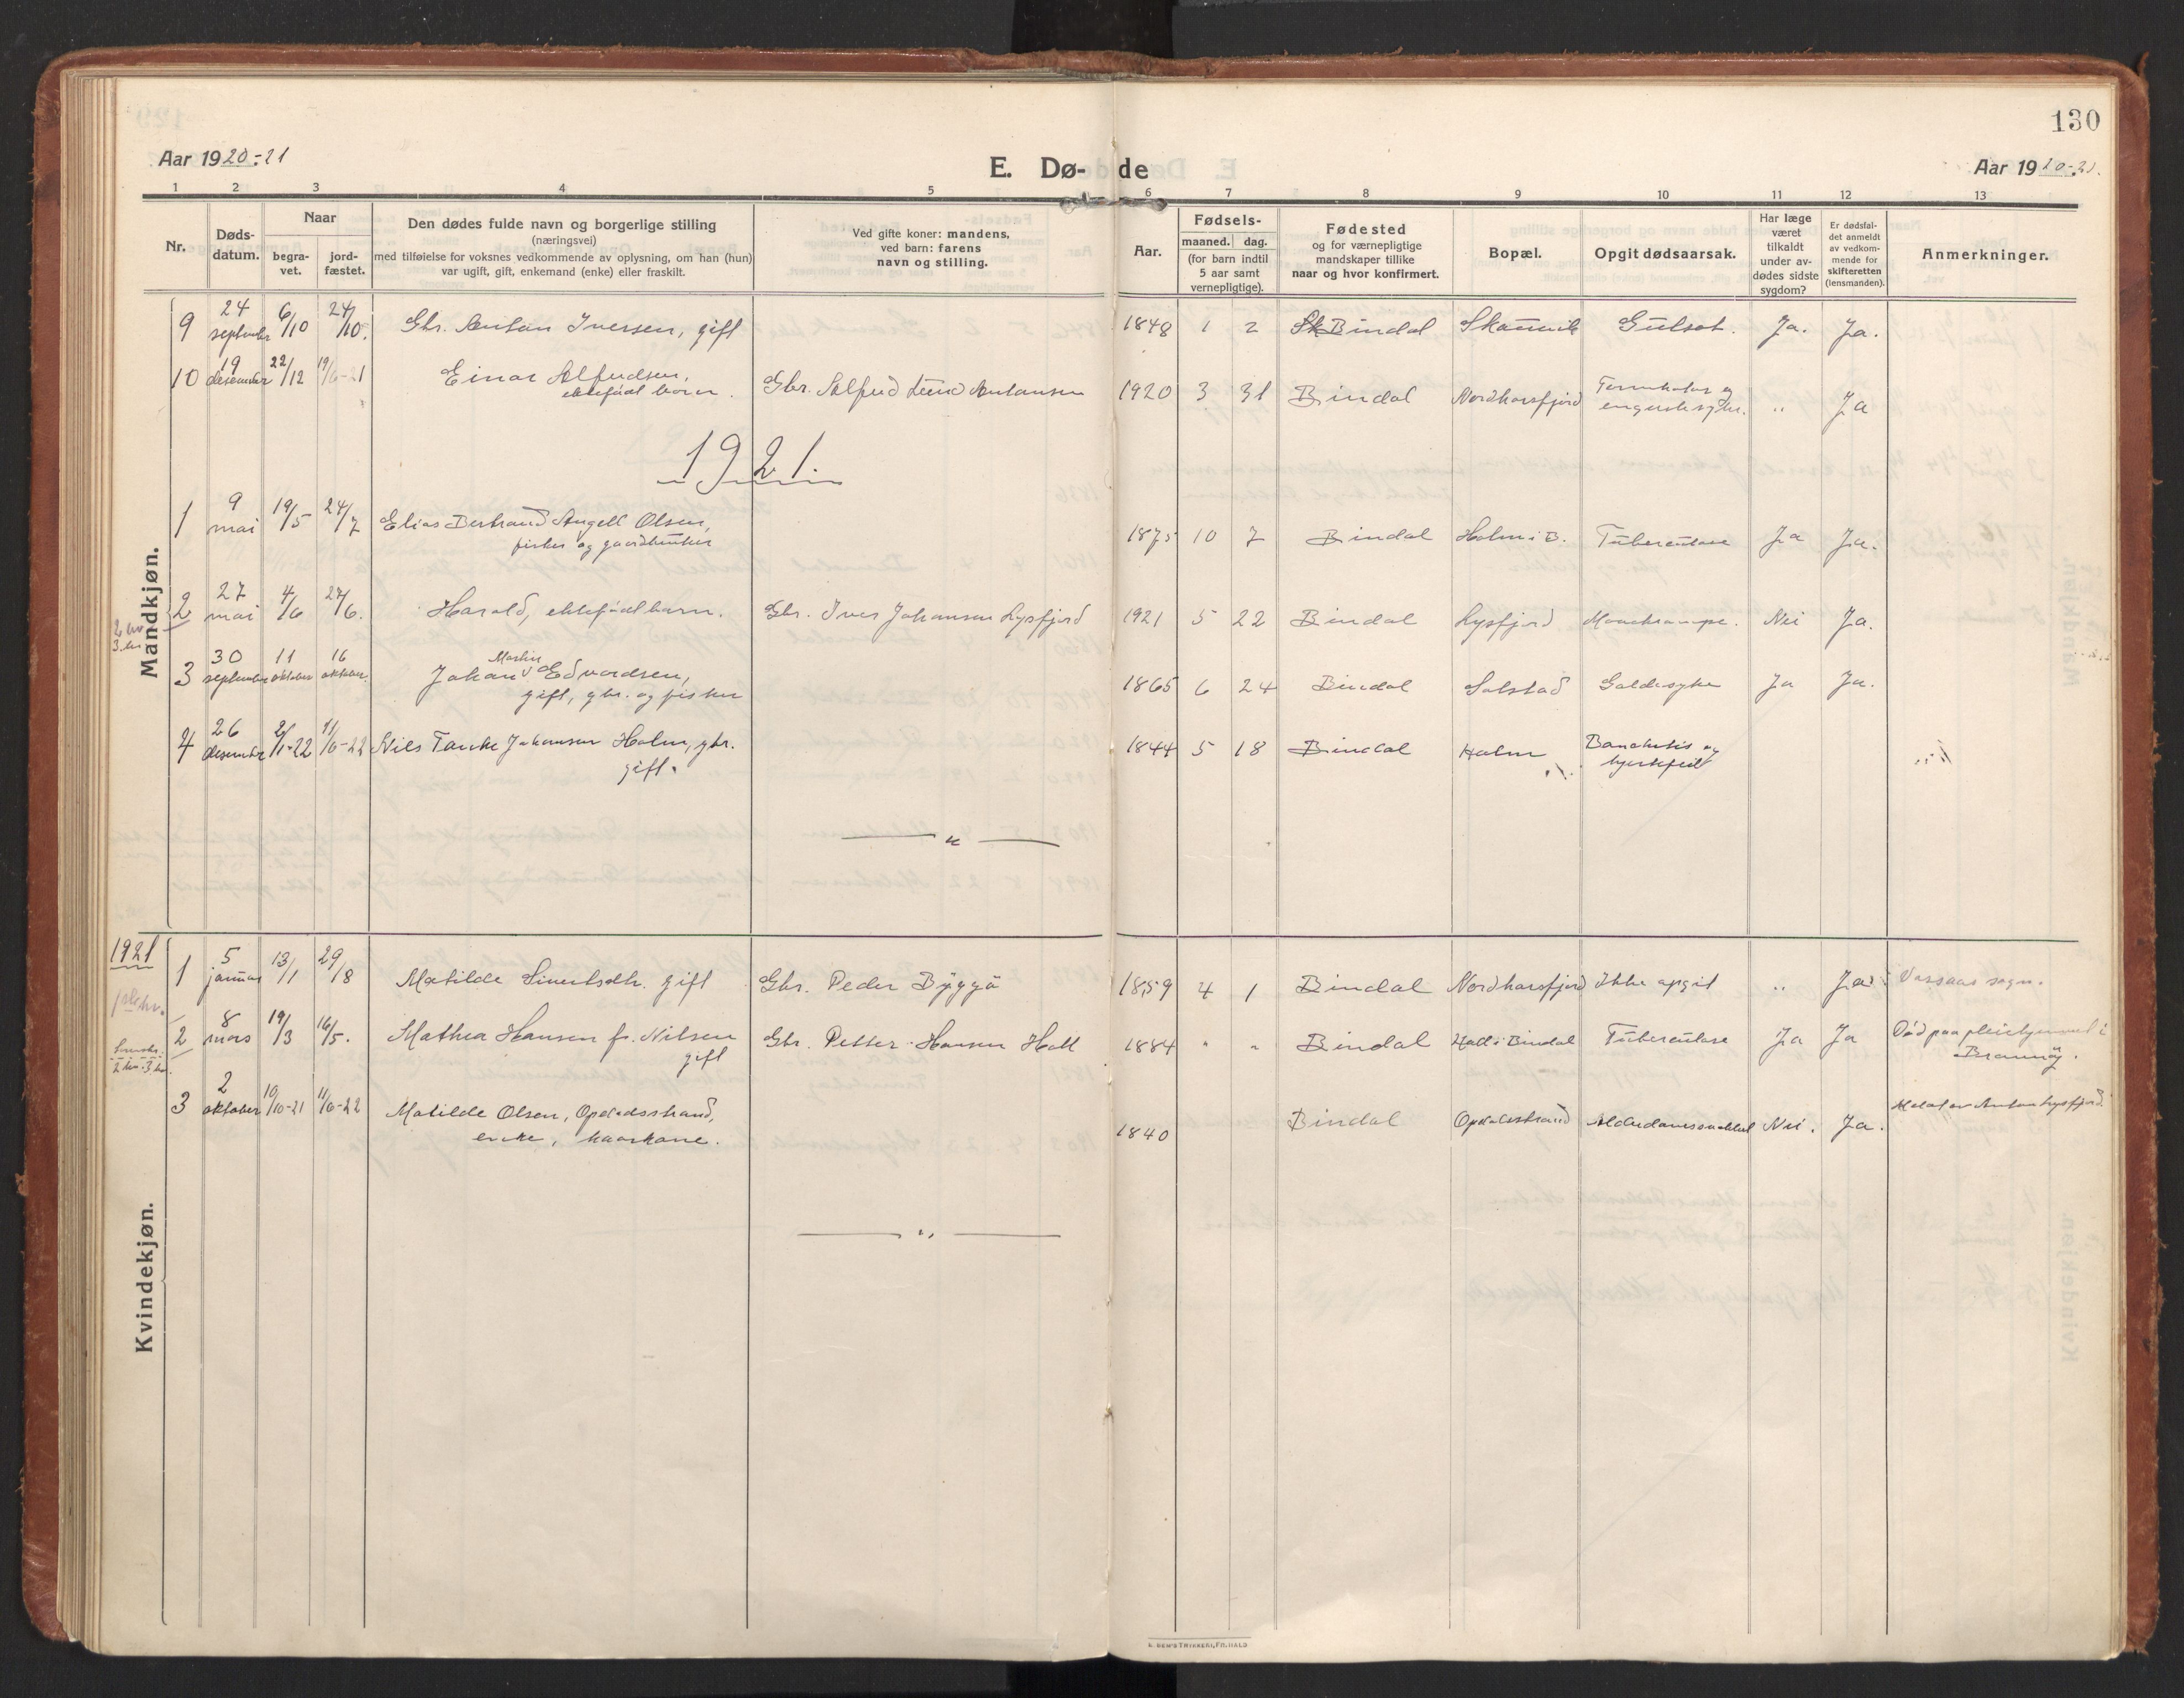 130
Aar 1920-21
E. Dø-de
Aar 1920-21.
1 2 3 4 5 6 7 8 9 10 11 12 13
Nr.
Døds-
datum.
Naar
begra-
vet.
jord-
fæstet.
Den dødes fulde navn og borgerlige stilling
(næringsvei)
med tilføielse for voksnes vedkommende av oplysning, om han (hun)
var ugift, gift, enkemand (enke) eller fraskilt.
Ved gifte koner: mandens,
ved barn: farens
navn og stilling.
Aar.
Fødsels-
maaned. dag.
(for barn indtil
5 aar samt
vernepligtige).
Fødested
og for værnepligtige
mandskaper tillike
naar og hvor konfirmert.
Bopæl.
Opgit dødsaarsak.
Har læge
været
tilkaldt
under av-
dødes sidste
sygdom?
Er dødsfal-
det anmeldt
av vedkom-
mende for
skifteretten
(lensmanden).
Anmerkninger.
Mandkjøn.
9 24 september 6/10 24/10. Gbr. Anton Iversen, gift 1848 1 2 Bindal Gulsot. Ja. Ja.
10 19 desember 22/12 19/6-21 Einar Alfredsen, Gbr. Alfred Antonsen 1920 3 31 Bindal Nordhorsfjord " Ja
ektefødt barn.
1921.
1 9 mai 19/5 24/7 Elias Bertrand Angell Olsen, 1875 10 7 Bindal Holm i B. Tuberculose Ja Ja.
fisker og gaardbruker
2 27 mai 4/6 24/6. Harald, ektefødt barn. Gbr. Iver Johansen Lysfjord 1921 5 22 Bindal Lysfjord Nei Ja.
3 30 september 11 oktober 16 oktober. Johan Martin Edvardsen, 1865 6 24 Bindal Solstad Galdesyke Ja Ja.
gift, gbr. og fisker
4 26 desember 2/1-22 11/6-22 Nils Tanke Johansen Holm, gbr. 1844 5 18 Bindal Holm og
gift. hjertefeil
— " —
Kvindekjøn.
1921
1 5 januar 13/1 29/8 Matilde Sivertsdtr. gift Gbr. Peder Bøgga 1859 4 1 Bindal Nordhorsfjord Ikke opgit " Ja Vassaas sogn.
2 8 mars 19/3 16/5. Mathea Hansen f. Nilsen Gbr. Petter Hansen Holl 1884 " " Bindal Holl i Bindal Tuberculose Ja Ja Død paa pleiehjemmet i
gift Brønnøy.
3 2 oktober 10/10-21 11/6-22 Matilde Olsen, Opdalsstrand, 1840 Bindal Opdalsstrand Alderdomssvakhet Nei. Ja. Meldt av Anton Lysfjord.
enke, kaarkone.
— " —